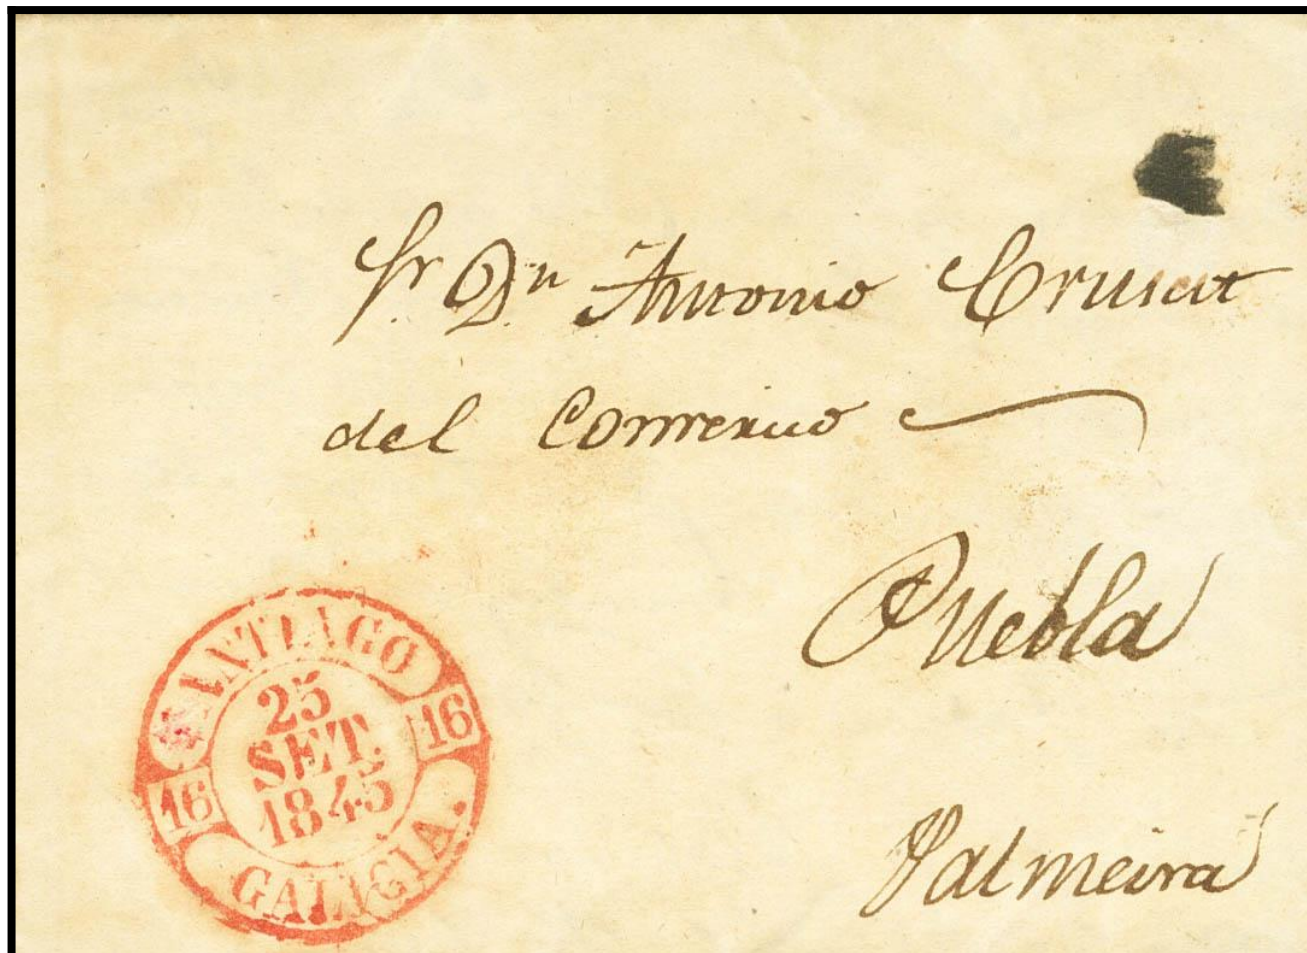 Sr. Dn. Antonio Crusat
del Comercio
Puebla
Palmeira
SANTIAGO
25
SET.
1845
16
16
GALICIA.